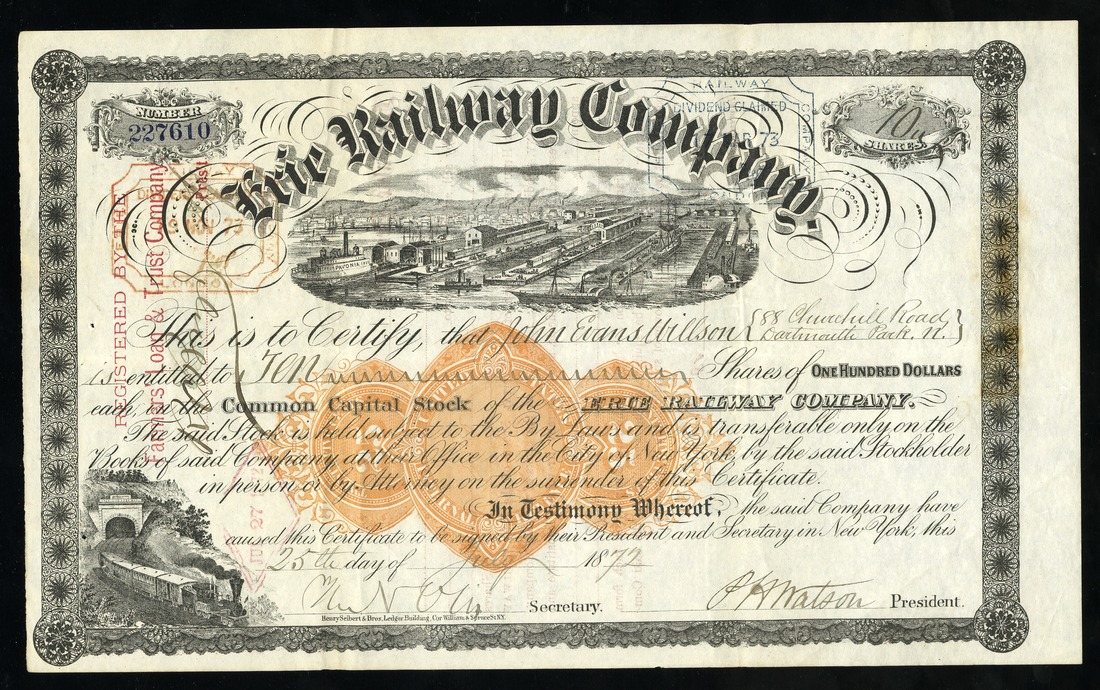 NUMBER
227610
Erie Railway Company.
10
SHARES.
RAILWAY
DIVIDEND CLAIMED
73
REGISTERED BY THE
Farmers Loan & Trust Company
PAVONIA
This is to Certify, that John Evans Willson {88 Churchill Road
Dartmouth Park. N.}
is entitled to TEN Shares of ONE HUNDRED DOLLARS
each, in the Common Capital Stock of the ERIE RAILWAY COMPANY.
The said Stock is held subject to the By Laws and is transferable only on the
Books of said Company at their Office in the City of New York by the said Stockholder
in person or by Attorney on the surrender of this Certificate.
In Testimony Whereof, the said Company have
caused this Certificate to be signed by their President and Secretary in New York, this
25th day of July 1872
Secretary.
P H Watson President.
Henry Seibert & Bros. Ledger Building, Cor William & Spruce St N.Y.